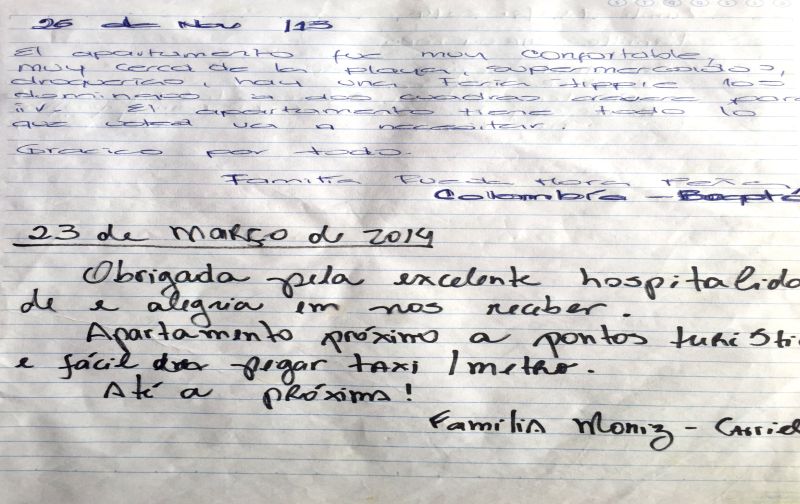 26 de Nov /13
El apartamento fue muy confortable,
muy cerca de la playa, supermercados,
droguerias, hay una feria hippie los
domingos a dos cuadras
El apartamento tiene todo lo
que usted va a necesitar.
Gracias por todo.
Familia
Colombia - Bogotá
23 de março de 2014
Obrigada pela excelente hospitalida
de e alegria em nos receber.
Apartamento próximo a pontos turísti
e fácil pegar taxi / metro.
Até a próxima!
Familia Moniz -